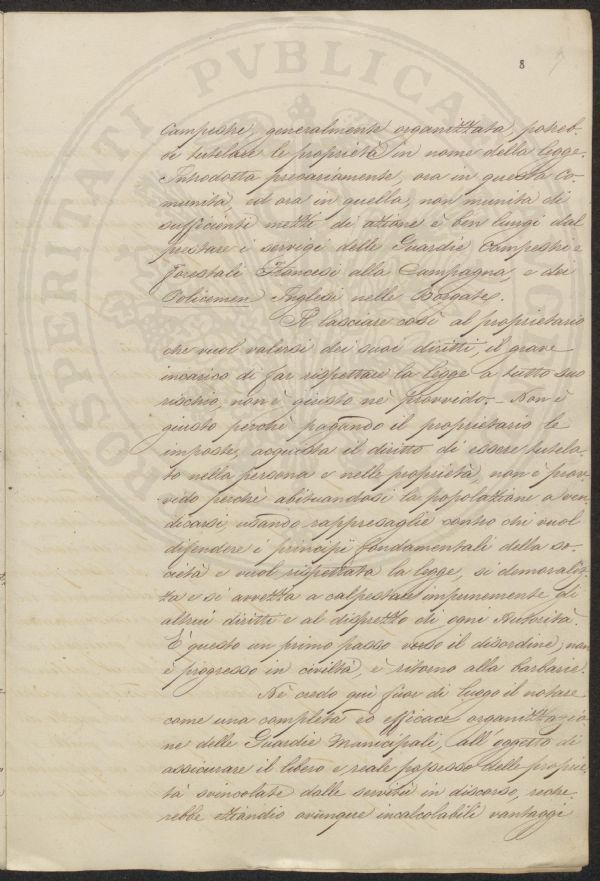 PROSPERITATI PVBLICAE AVG
8
Campestri, generalmente organizzata, potreb-
be tutelare le proprietà in nome della legge.
Introdotta precariamente, ora in questa Co-
munità, ed ora in quella, non munita di
sufficienti mezzi di azione è ben lungi dal
prestare i servigi delle Guardie Campestri e
forestali Francesi alla Campagna, e dei
Policemen Inglesi nelle Borgate.
Il lasciare così al proprietario
che vuol valersi dei suoi diritti, il grave
incarico di far rispettare la legge a tutto suo
rischio, non è giusto nè provvido. – Non è
giusto perchè pagando il proprietario le
imposte, acquista il diritto di essere tutela-
to nella persona e nelle proprietà, non è prov-
vedo perchè abituandosi la popolazione a ven-
dicarsi, usando rappresaglie contro chi vuol
difendere i principii fondamentali della so-
cietà e vuol rispettata la legge, si demoraliz-
za e si avvezza a calpestare impunemente gli
altrui diritti e al disprezzo di ogni Autorità.
È questo un primo passo verso il disordine; non
è progresso in civiltà, è ritorno alla barbarie.
Nè credo quì fuor di luogo il notare
come una completa ed efficace organizzazio-
ne delle Guardie Municipali, all'oggetto di
assicurare il libero e reale possesso delle proprie-
tà svincolate dalle servitù in discorso, reche-
rebbe eziandio ovunque incalcolabili vantaggi